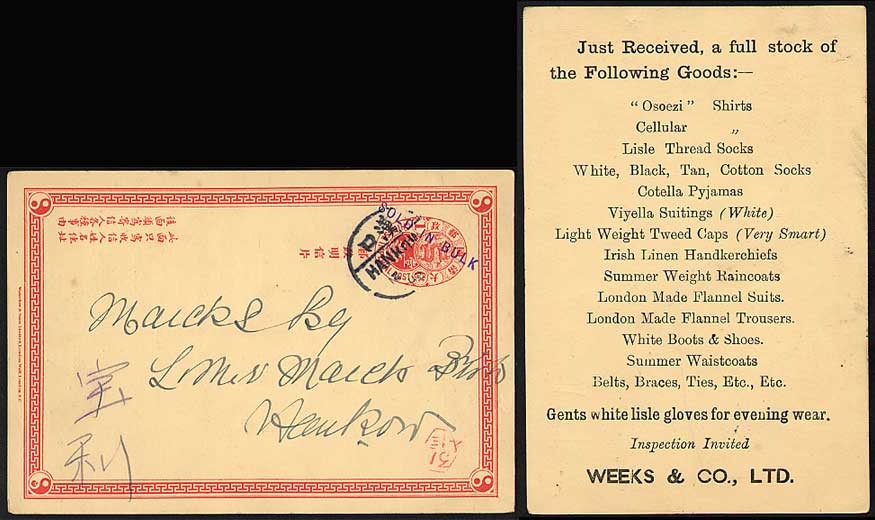 後面寫寄信人各種事由
此面只寫收信人姓名住址
郵政明信片
SOLD IN BULK
漢口
HANKOW
Hankow
寶
利
Just Received, a full stock of
the Following Goods:—
"Osoezi" Shirts
Cellular „
Lisle Thread Socks
White, Black, Tan, Cotton Socks
Cotella Pyjamas
Viyella Suitings (White)
Light Weight Tweed Caps (Very Smart)
Irish Linen Handkerchiefs
Summer Weight Raincoats
London Made Flannel Suits.
London Made Flannel Trousers.
White Boots & Shoes.
Summer Waistcoats
Belts, Braces, Ties, Etc., Etc.
Gents white lisle gloves for evening wear.
Inspection Invited
WEEKS & CO., LTD.